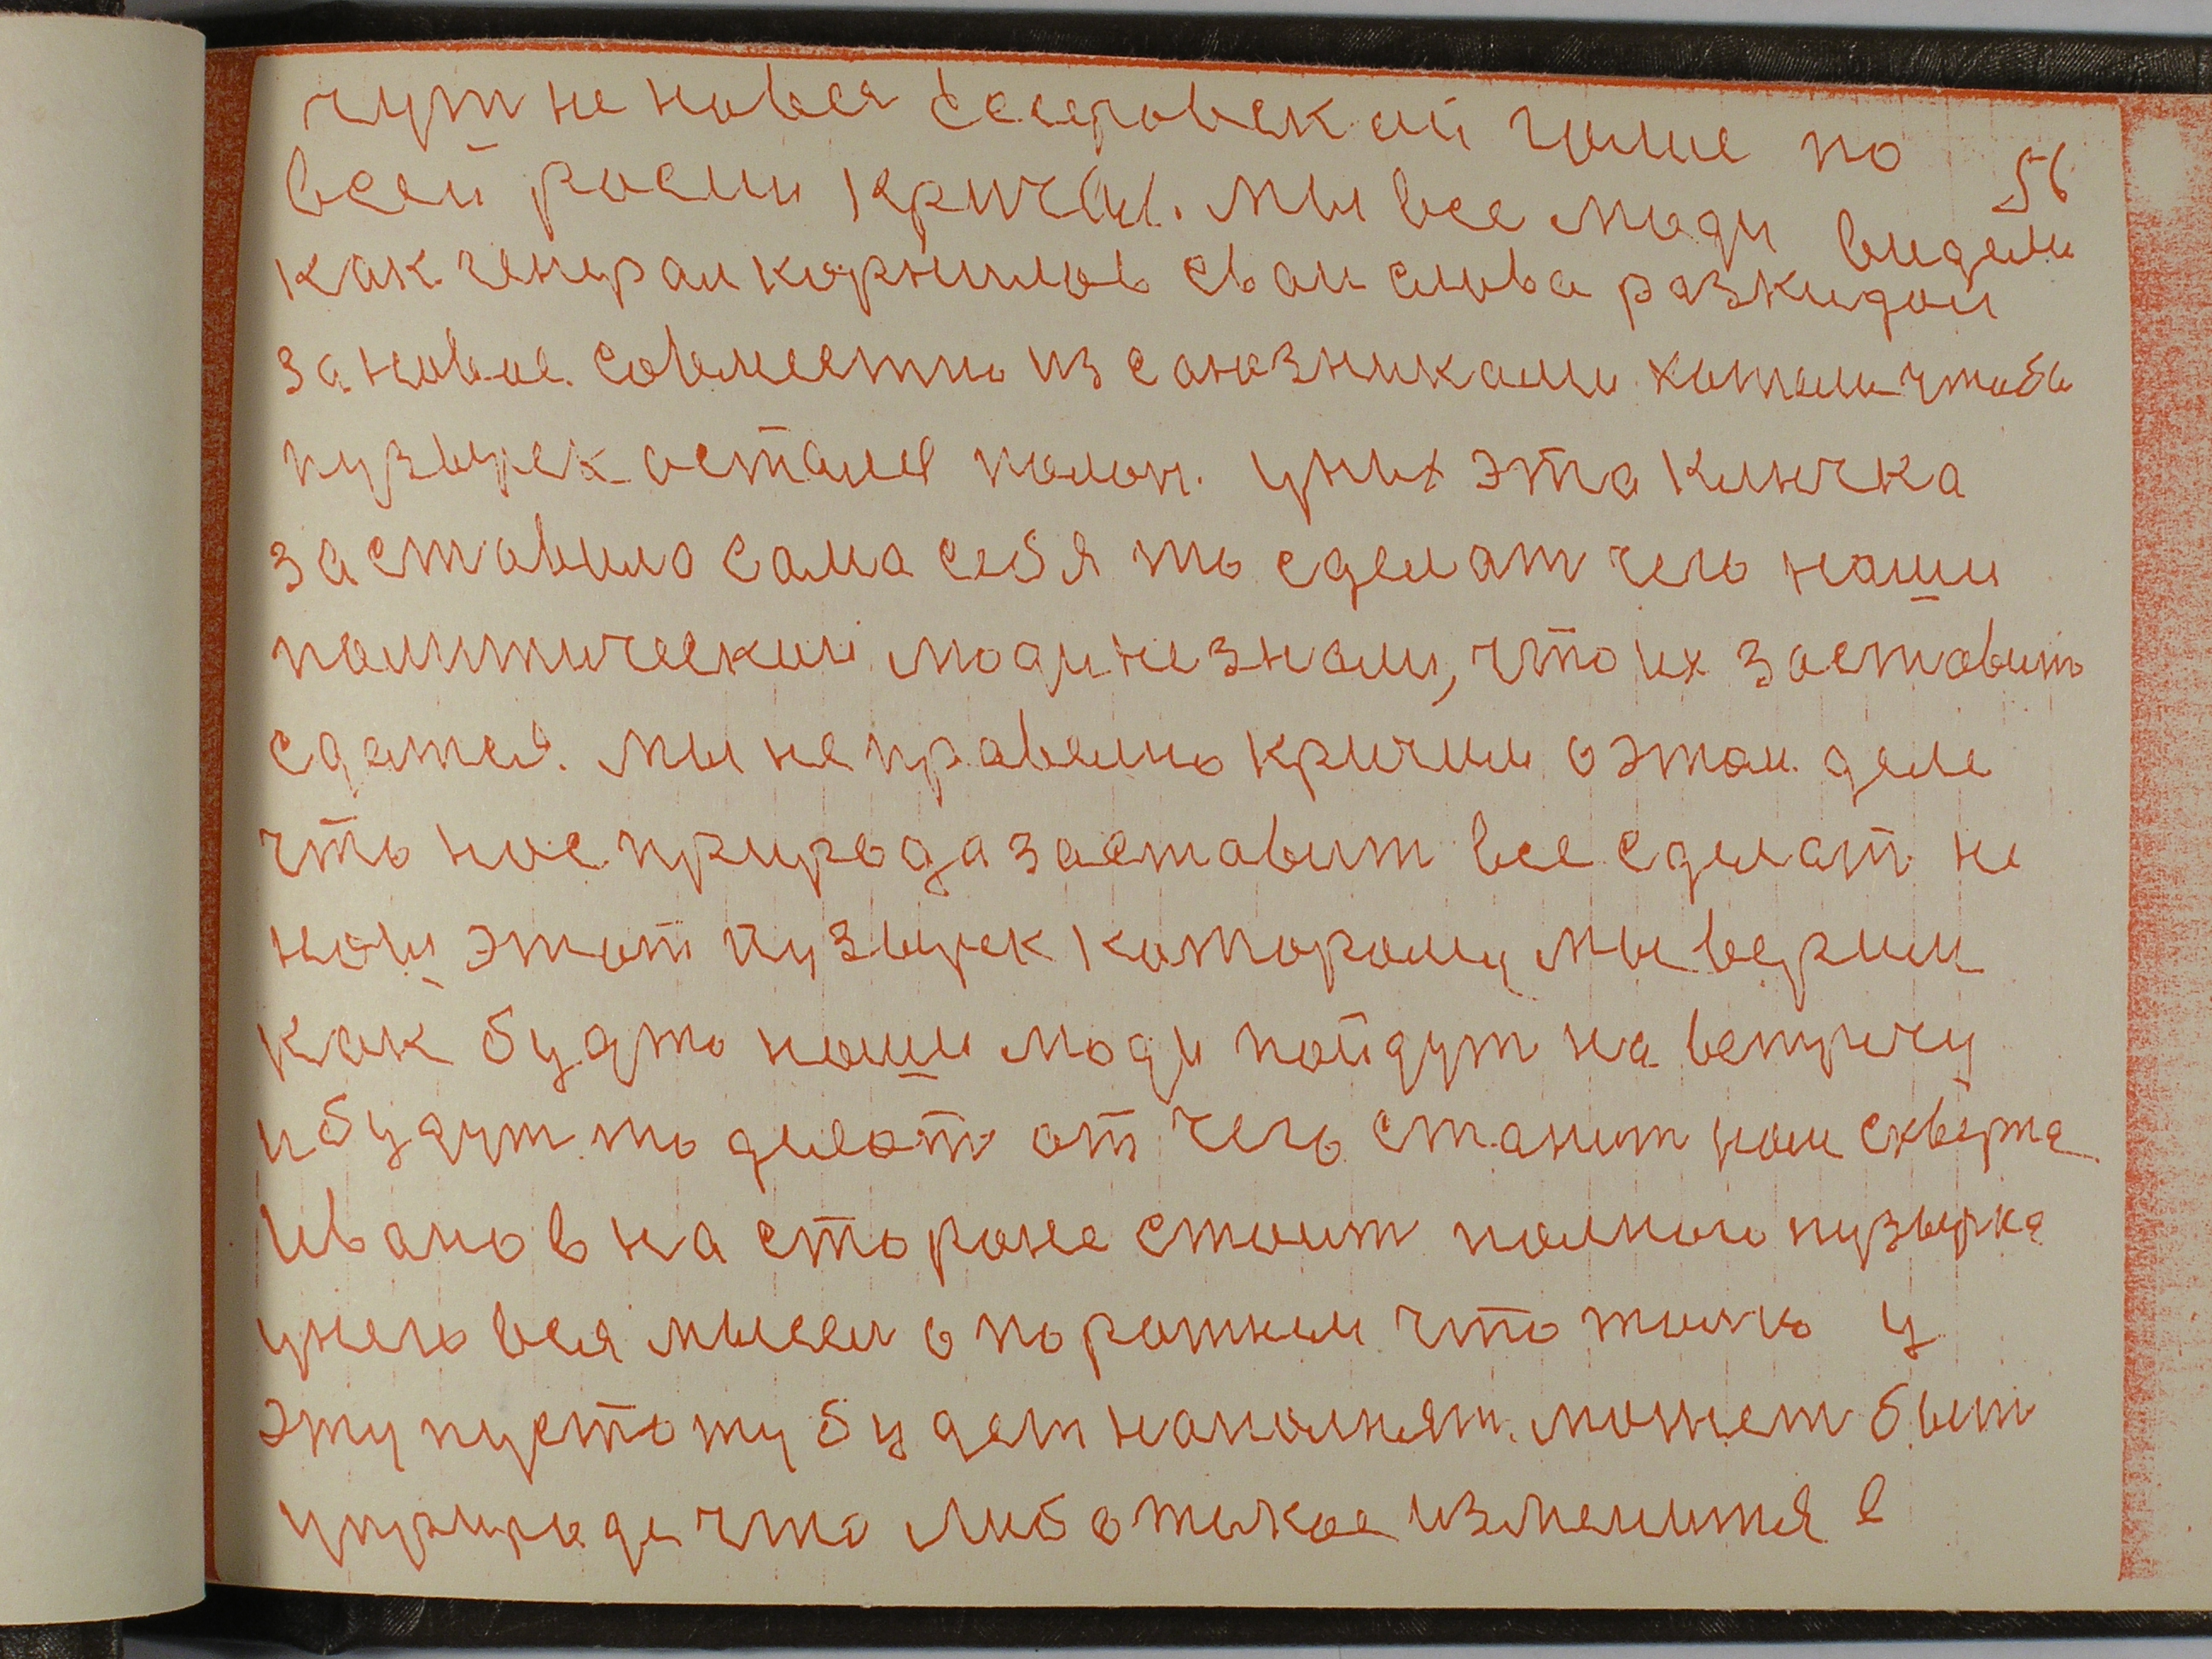 чут не новся эсеровский голие по
всей росии кричал. мы все люди видели
56
как генерал корнилов свои слова разкидои
за новое. совместно из союзниками хотели чтобы
пузырек остался полон. у них эта кличка
заставила сама себя то сделат чего наши
политический люди не знали, что их заставит
сдатся. мы не правелно кричим о этом деле
что нас природа заставит все сделат не
нош этот пузырек которому мы верим
как будто наши люди пойдут на встречу
и будут то делат от чего станит нам скверна
иванов на стороне стоит полного пузырка
у него вся мысел о поротним что толко у
эту пустоту будет наполнят. может быт
у природе что либо токое изменится в